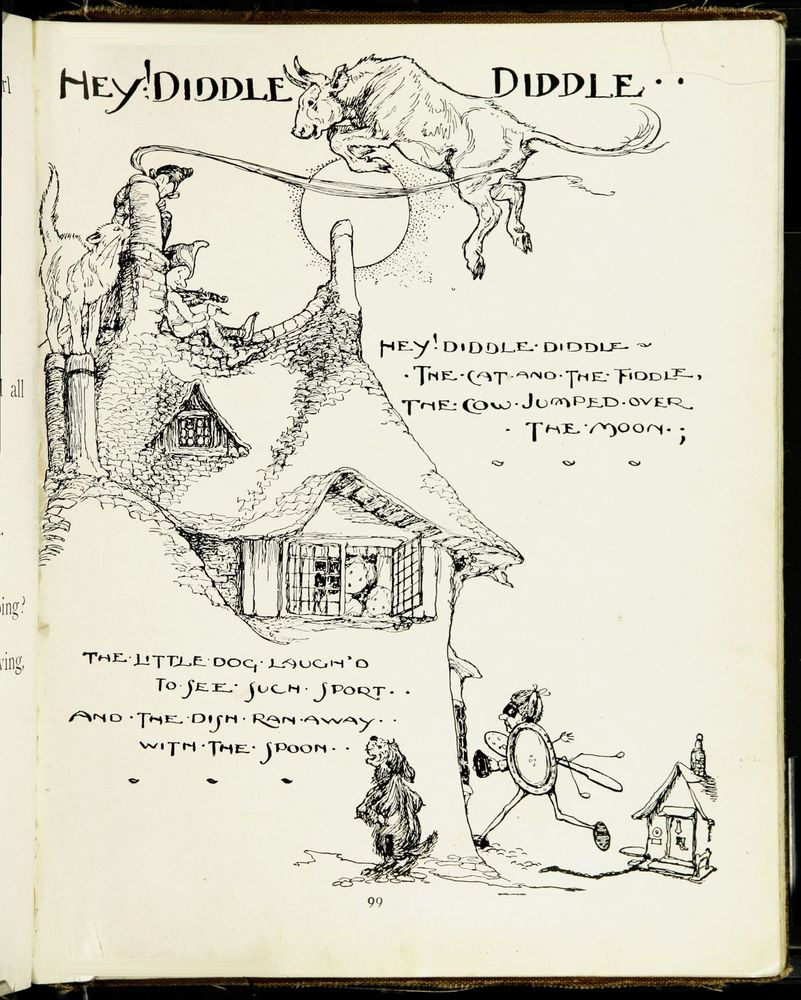 HEY! DIDDLE DIDDLE··
HEY! DIDDLE·DIDDLE~
·THE·CAT·AND·THE·FIDDLE,
THE·COW·JUMPED·OVER
·THE·MOON·;
THE·LITTLE·DOG·LAUGH'D
TO·SEE·SUCH·SPORT··
AND·THE·DISH·RAN·AWAY··
WITH·THE·SPOON··
99
all
ing?